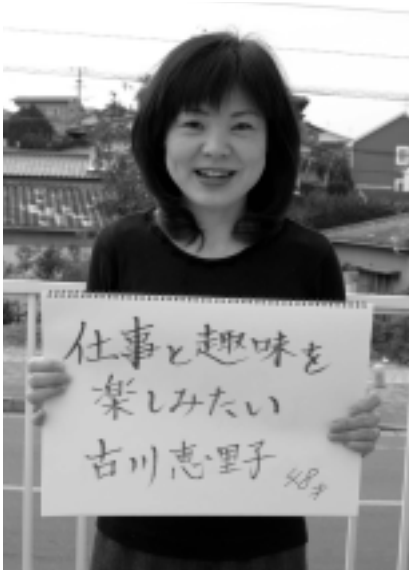 仕事と趣味を
楽しみたい
古川恵里子 48才